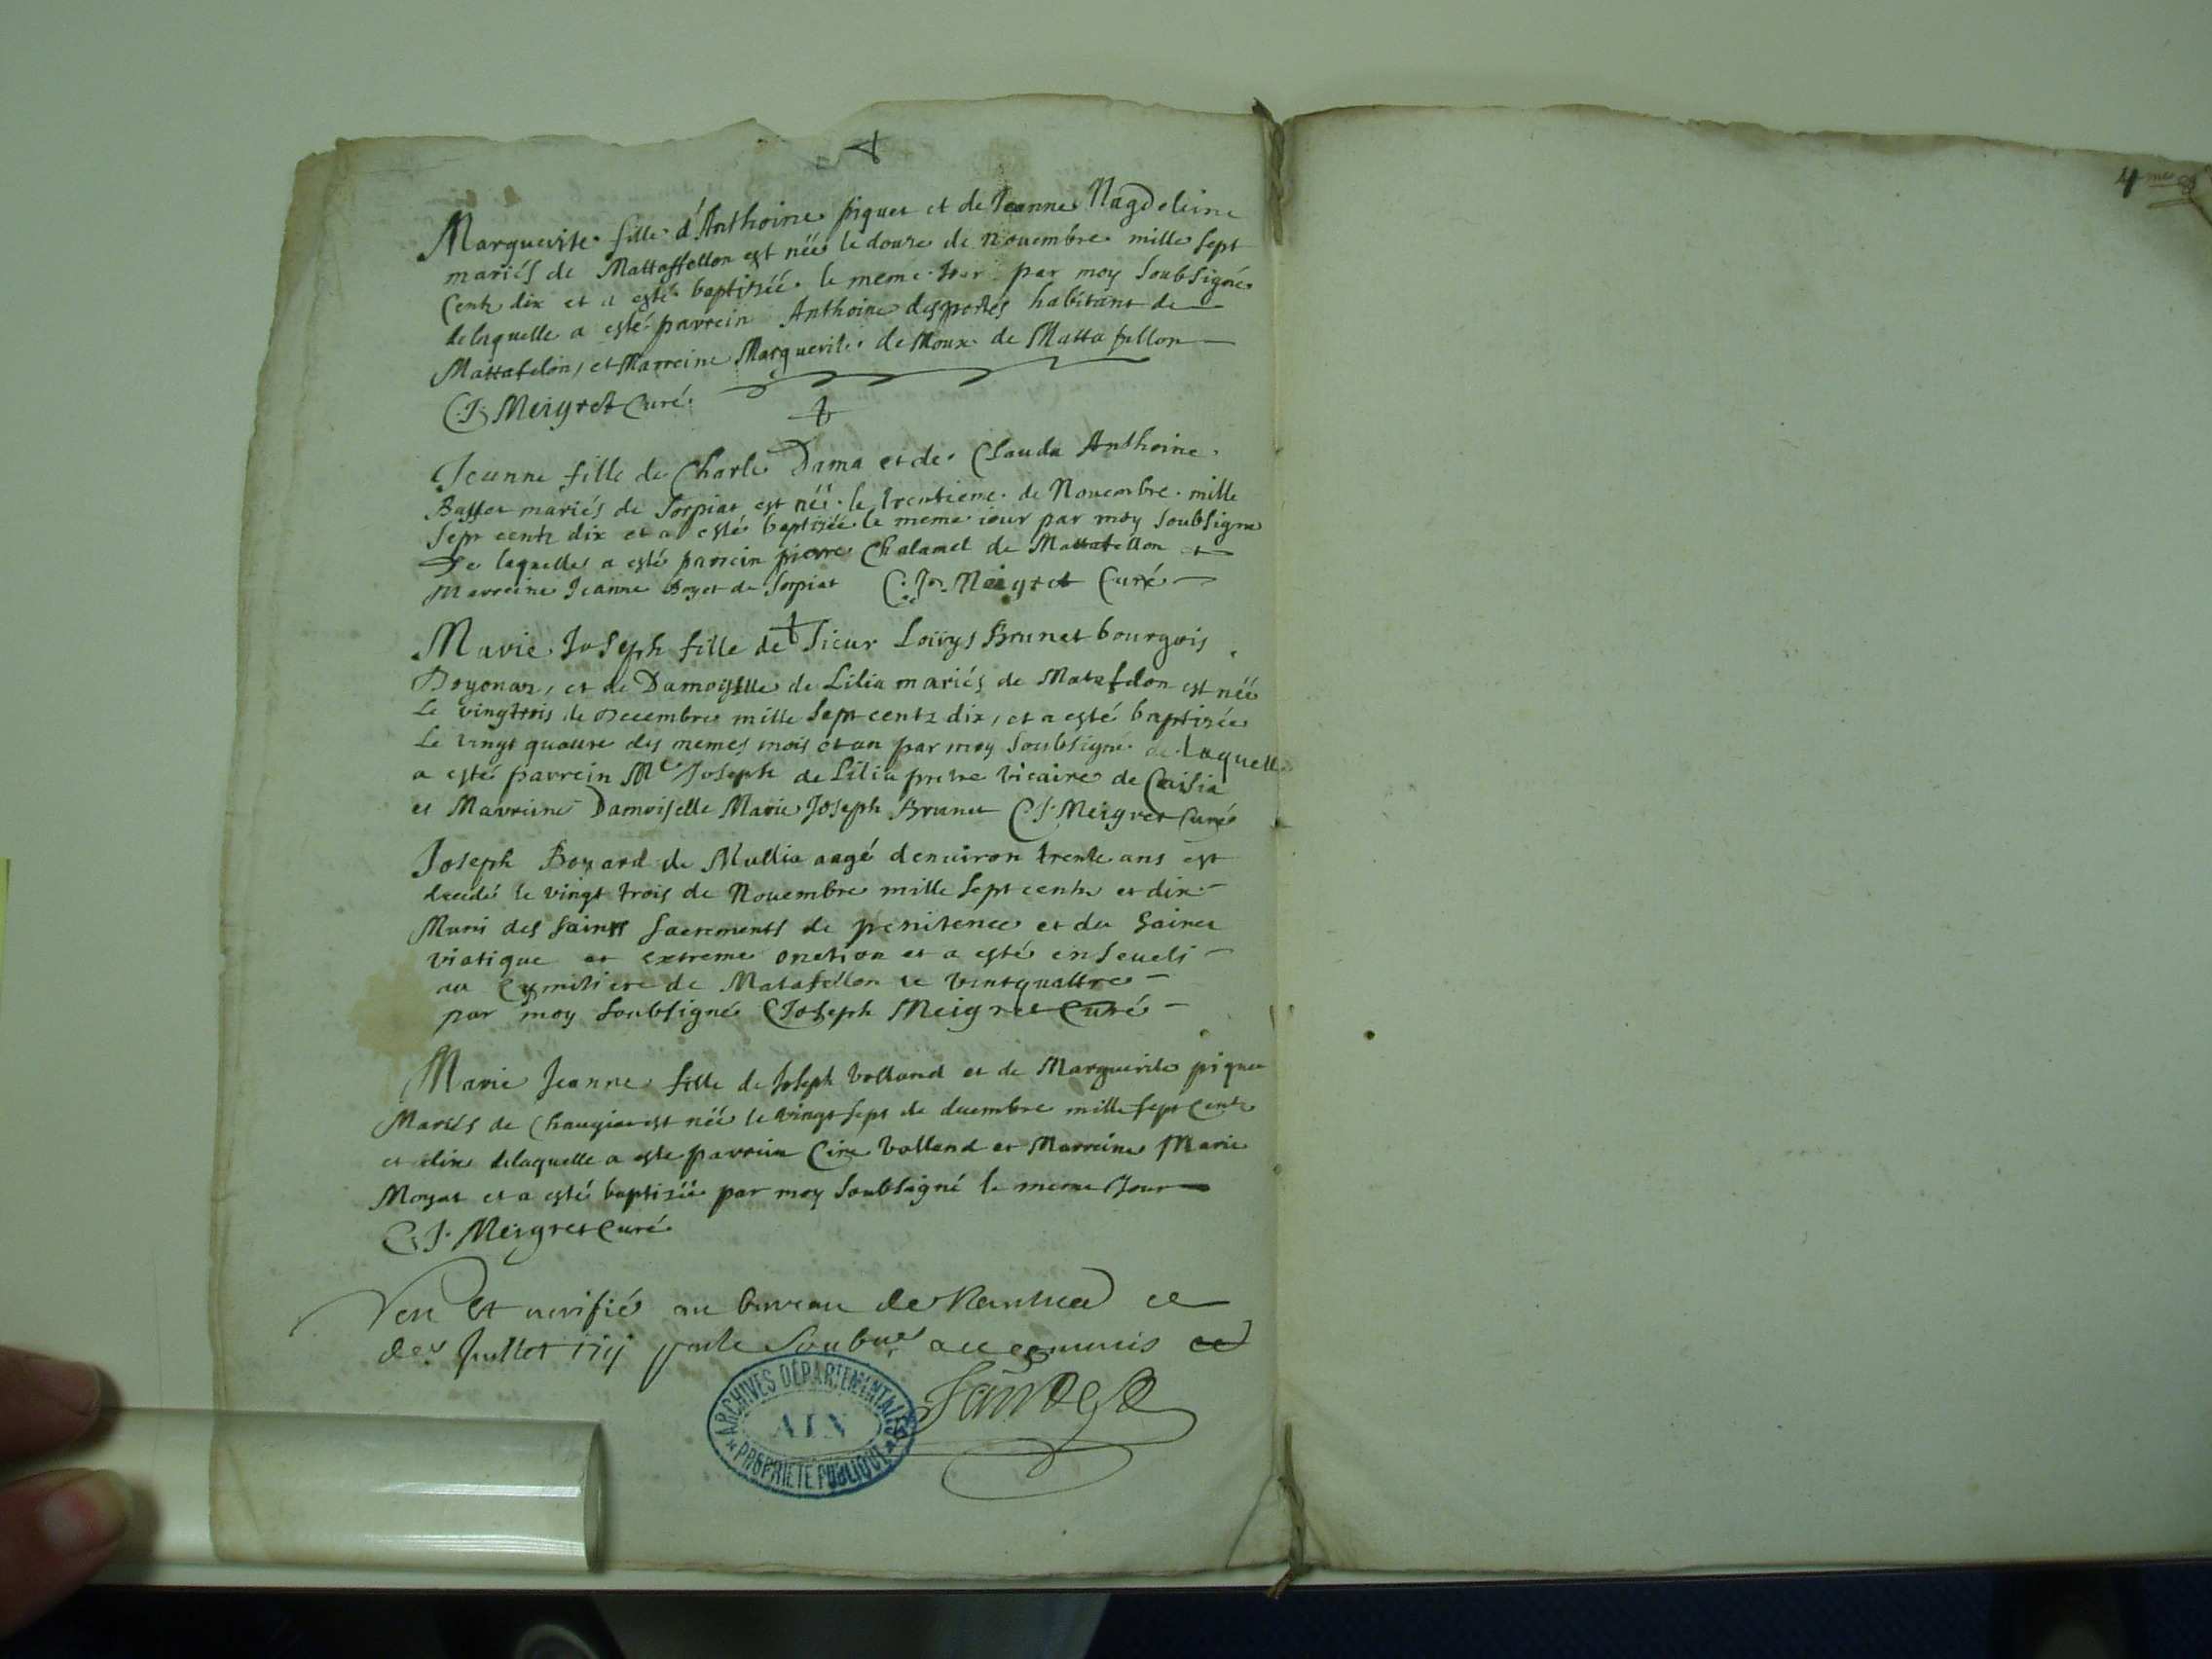 Marguerite fille d'Anthoine piquet et de Jeanne Magdeleine
mariés de Mattaffellon est néé le douze de Novembre mille sept
Centz dix et a esté baptizéé le meme Jour par moy soubsigné
de laquelle a esté parrein Anthoine desportes habitant de
Mattafelon, et Marreine Marguerite de Moux de Matta fellon
C. J. Meigret Curé
Jeanne fille de Charle Dama et de Clauda Anthoine
Buffet mariés de Sorpiat est néé le trentieme de Novembre mille
sept centz dix et a esté baptizéé le meme iour par moy soubsigné
De laquelle a esté parrein pierre Chalamel de Mattafellon et
marreine Jeanne Boyet de Sorpiat C. Jo. Meigret Curé
Marie Joseph fille de Sieur Loüys Brunet bourgois
Doyonaz, et de Damoyselle de Lilia mariés de Matafelon est néé
Le vingtrois de Decembre mille sept centz dix, et a esté baptizée
Le vingt quattre des memes mois et an par moy soubsigné de laquelle
a esté parrein Me Joseph de Lilia pretre vicaire de Cuisia
et Marreine Damoiselle Marie Joseph Brunet C. J. Meigret Curé
Joseph Bozard de Mullia aagé denuiron trente ans est
decedé le vingt trois de Novembre mille sept centz et dix
Muni des saints sacrements de penitence et du sainct
viatique et extreme onction et a esté enseueli
au Cymitiere de Matafellon le vintquattre
par moy soubsigné C Joseph Meigret Curé
Marie Jeanne fille de Joseph Volland et de Marguerite piquet
Mariés de est néé le vingt sept de decembre mille sept Centz
et dix de laquelle a este parrein Volland et Marreine Marie
Moyat et a esté baptizéé par moy soubsigné le meme Jour
C. J. Meigret Curé
Veu Et verifié au bureau de Nantua ce
Juillet 1711 par le commis
ARCHIVES DÉPARTEMENTALES
AIN
PROPRIÉTÉ PUBLIQUE